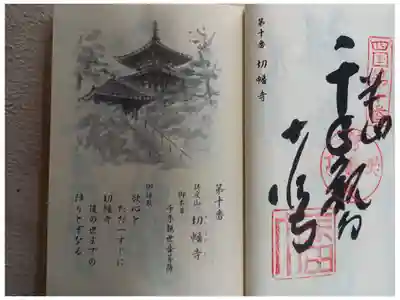 千手観音
四国第十番
第十番 切幡寺
第十番
得度山 切幡寺
御本尊
千手観世音菩薩
御詠歌
欲心を
ただ一すじに
切幡寺
後の世までの
障りとぞなる